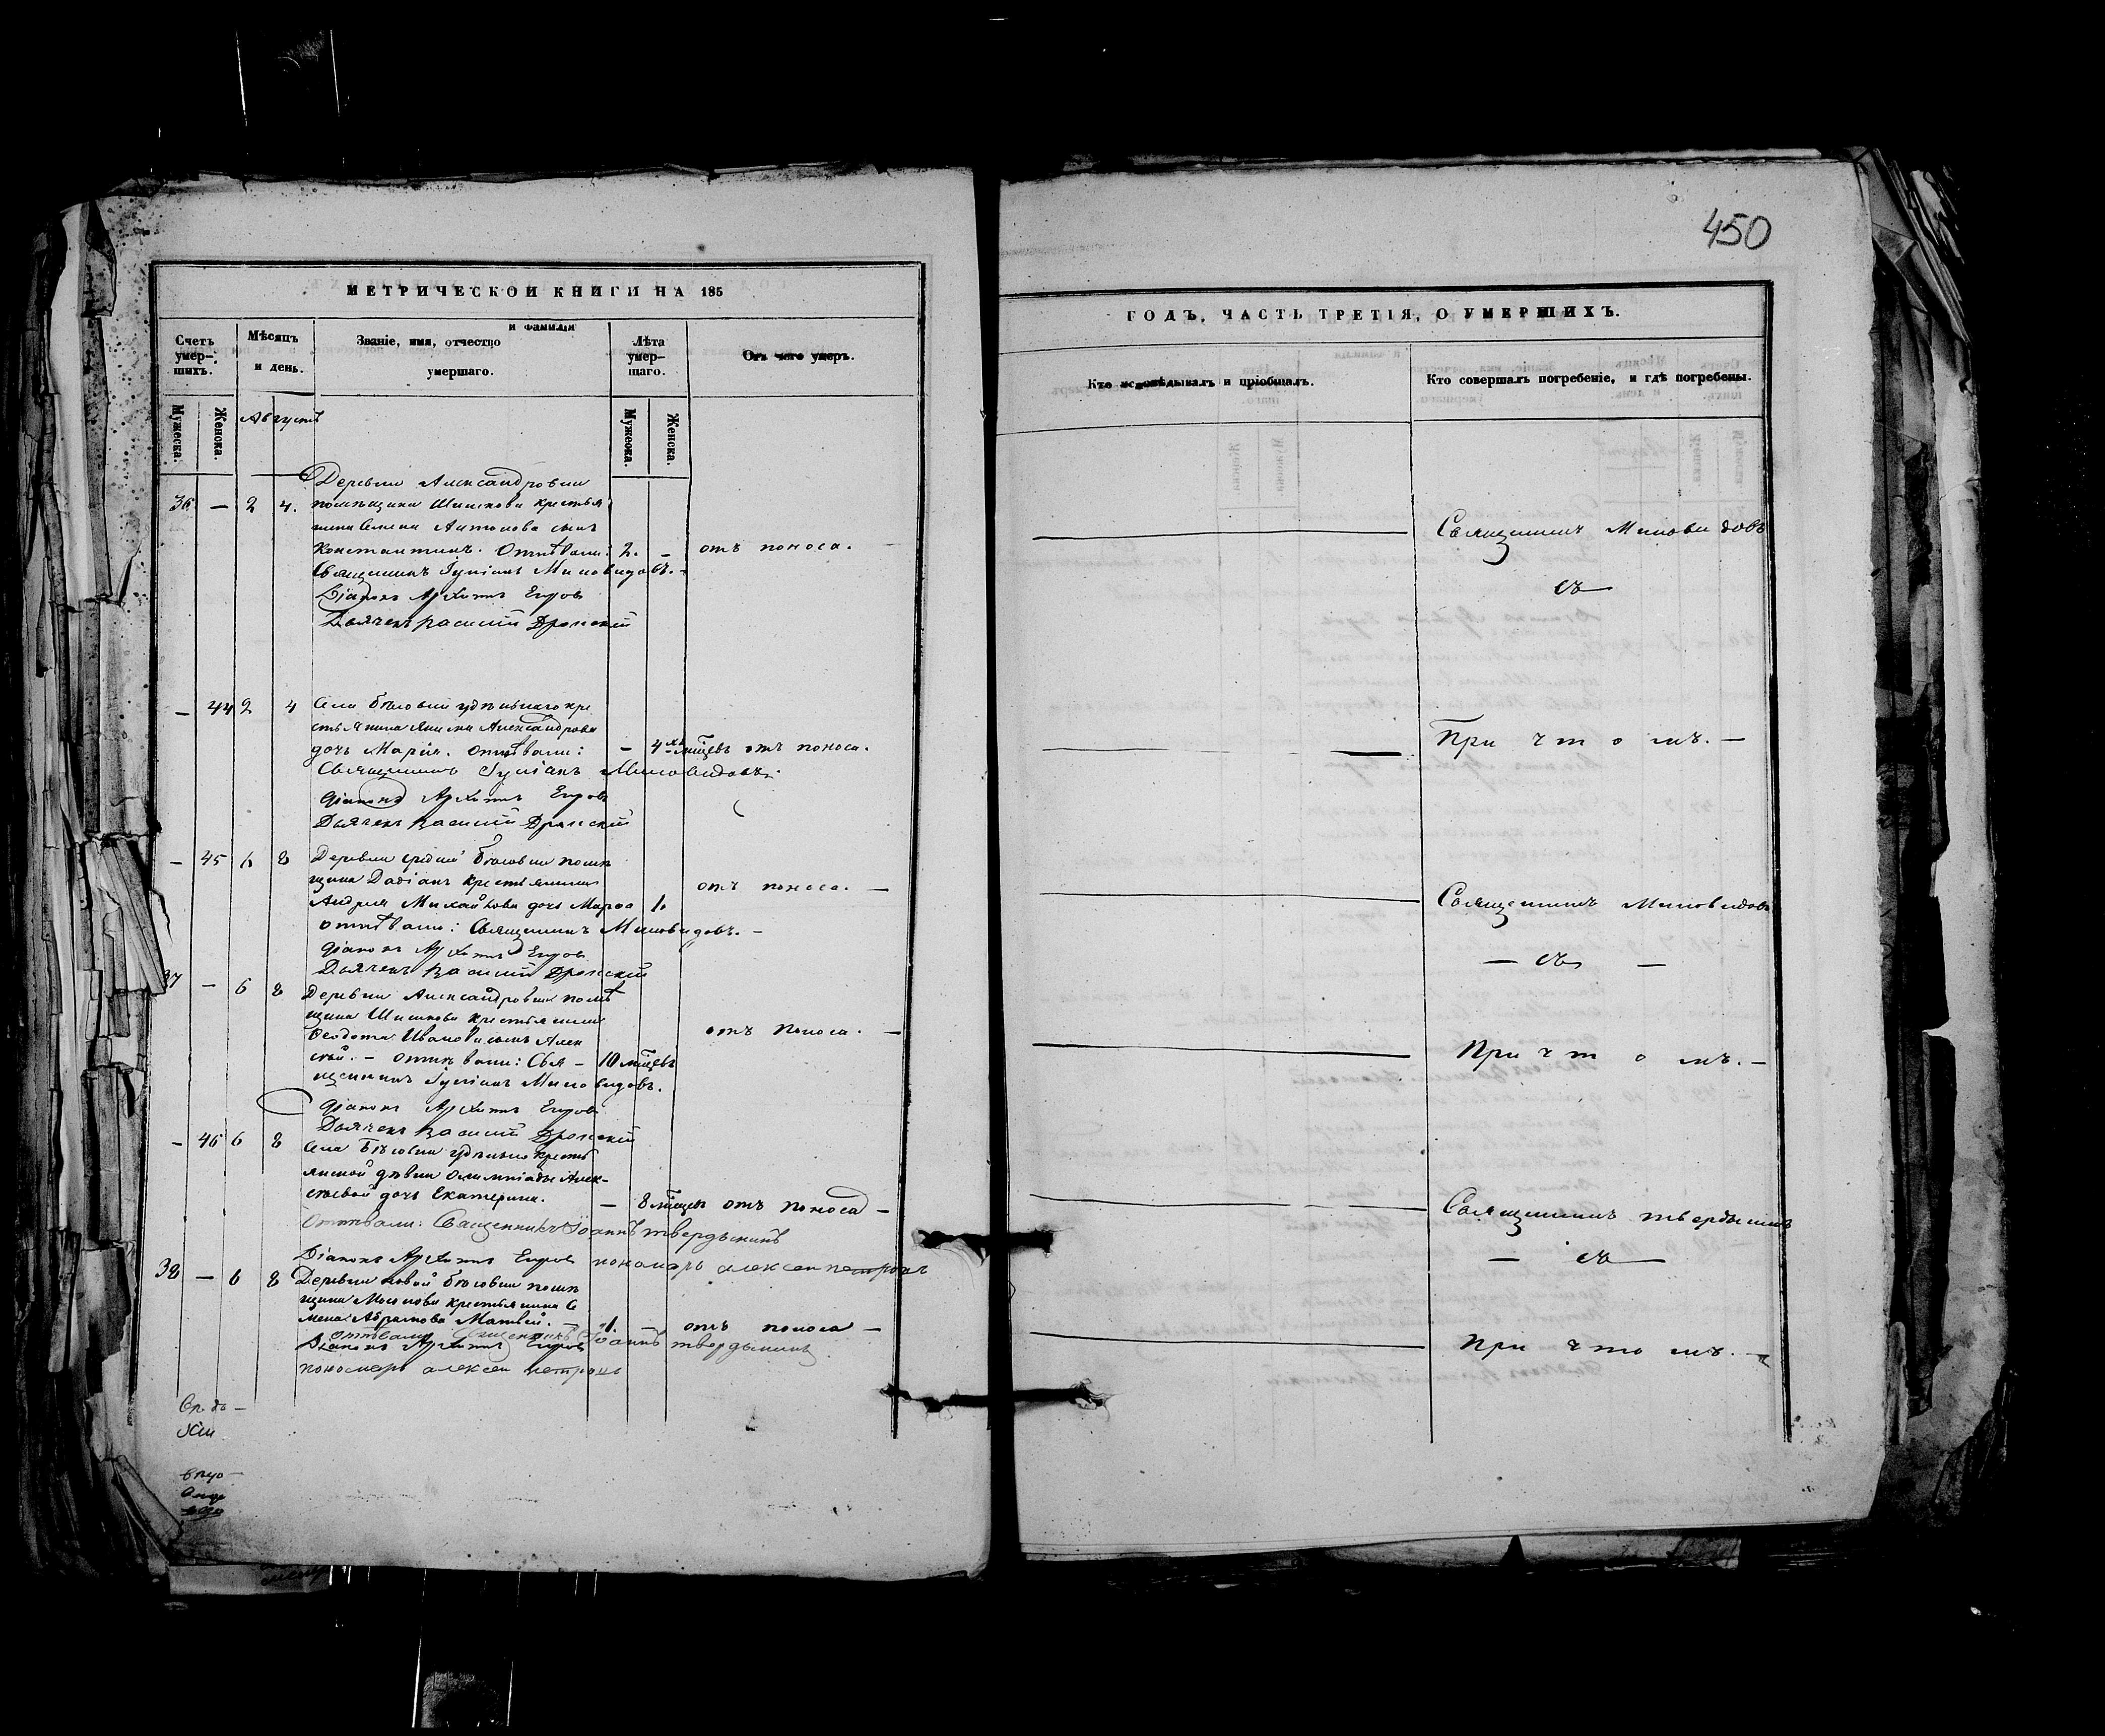 450
МЕТРИЧЕСКОЙ КНИГИ НА 185
ГОДЪ, ЧАСТЬ ТРЕТІЯ, О УМЕРШИХЪ.
Счетъ умер-шихъ.
Мѣсяцъ и день.
и фамилія
Званіе, имя, отчество
умершаго.
Лѣта умер-щаго.
Отъ чего умеръ.
Кто исповѣдывалъ и пріобщалъ.
Кто совершалъ погребеніе, и гдѣ погребены.
Мужеска.
Женска.
Августъ
Мужеска.
Женска.
Деревни Александровки
36 — 2 4. помѣщика Шишкова крестья
нина Семена Антонова сынъ
Константинъ. Отпѣвали: 2. — отъ поноса.
Священникъ Іуліанъ Миловидовъ.
Діаконъ Архипъ Егоровъ
Дьячекъ Василій
Священникъ Миловидовъ
съ
— 44 2 4 Села удѣльнаго кре
стьянина Александрова
дочь Марія. Отпѣвали: — 4 хъ мѣсяцевъ отъ поноса.
Священникъ Іуліанъ Миловидовъ.
Діаконъ Архипъ Егоровъ
Дьячекъ Василій
Причтомъ. —
— 45 6 8 Деревни средней помѣ
щика крестьянина
Андрея Михайлова дочь Марѳа 1. отъ поноса. —
отпѣвали: Священникъ Миловидовъ. —
Діаконъ Архипъ Егоровъ
Дьячекъ Василій
Священникъ Миловидовъ
— съ —
37 — 6 8 Деревни Александровки помѣ
щика Шишкова крестьянина
Ѳеодота Иванова сынъ Алек
сѣй. — отпѣвали: Свя — 10 мѣсяцевъ отъ поноса. —
щенникъ Іуліанъ Миловидовъ.
Діаконъ Архипъ Егоровъ
Дьячекъ Василій
Причтомъ. —
— 46 6 8 Села удѣльной кресть
янской дѣвки Олимпіады Алек-
сѣевой дочь Екатерина. — 8 мѣсяцевъ отъ поноса —
Отпѣвали: Священникъ Іоаннъ Твердынинъ
Діаконъ Архипъ Егоровъ пономарь алексей
Священникъ Твердынинъ
— съ —
38 — 6 8 Деревни новой помѣ
щика крестьянина Се
мена Абрамова Матвей. — 1. отъ поноса —
отпѣвали Священникъ Іоаннъ Твердынинъ
Діаконъ Архипъ Егоровъ
пономарь алексей
Причтомъ. —